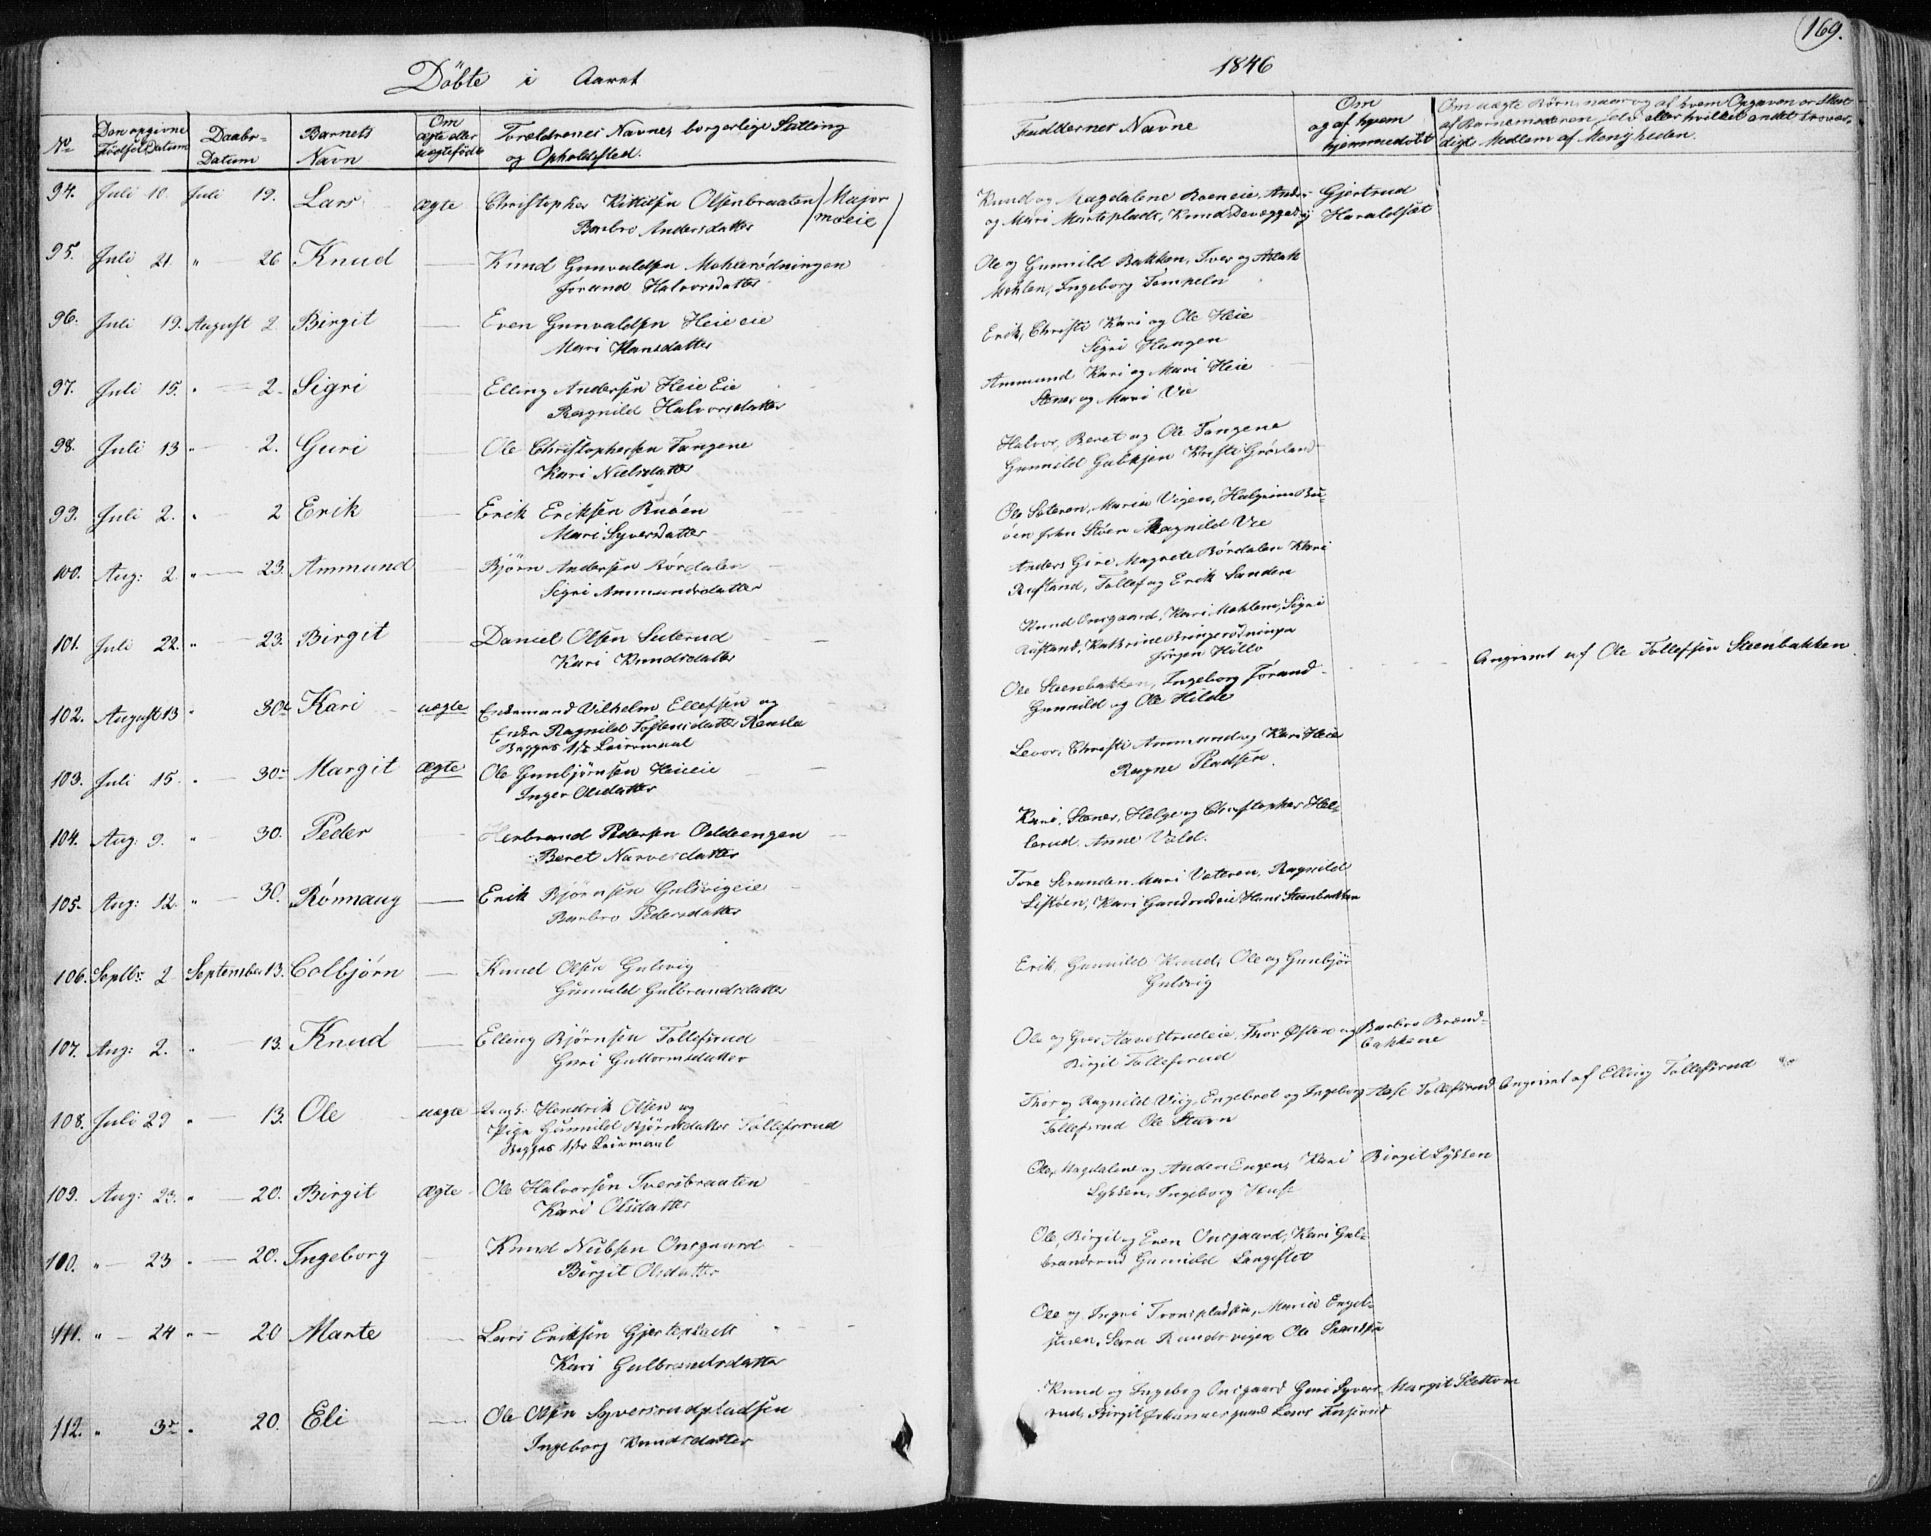 169.
Döbte i Aaret
1846
No
Den opgivne Fødsels Datum
Daabs-Datum
Barnets Navn
Om ægte eller uægte født
Forældrenes Navne, borgerlige Stilling og Opholdsted.
Faddernes Navne
Om og af hvem hjemmedöbt
Om uægte Börn, naar og af hvem Opgaven er skeet af Barnemoderen selv eller hvilket andet troværdigt Medlem af Menigheden.
94. Juli 10. Juli 19. Lars ægte Christopher Kittilsen Olsenbraaten (Major moeie)
Barbro Andersdatter
Knud og Magdalene Roeneie, Anders Gjertrud
og Mari Marteplads, Knud Haraldset
95. Juli 21. " 26 Knud Knud Gunvaldsen Mohlerödningen
Jorand Halvorsdatter
Ole og Gunnild Bakken, Iver og Aslak
Mohlen, Ingeborg Tempeln
96. Juli 19. August 2 Birgit Even Gunvaldsen Heie eie
Mari Hansdatter
Erik, Christi Kari og Ole Heie
Sigri Haugen
97. Juli 15. " 2. Sigri Elling Andersen Heie Eie
Ragnild Halvorsdatter
Ammund Kari og Mari Heie
Stener og Mari Vie
98. Juli 13 " 2. Guri Ole Christophersen Tangene
Kari Nielsdatter
Halvor, Beret og Ole Tangene
Gunnild Gulskjen Kristi Grösland
99. Juli 2. " 2 Erik Erik Eriksen Buöen
Mari Syversdatter
Ole Sateren, Maria Vigen, Halgrim Bu-
öen John Stöen Ragnild Vie
100. Aug: 2. " 23. Ammund Björn Andersen Rördalen
Sigri Ammundsdatter
Anders Gire Magrete Rördalen Kari
Rustand, Tollef og Erik Sanden
101. Juli 22. " 23. Birgit Daniel Olsen Seterud
Kari Knudsdatter
Knud Onsgaard, Kari Mohlene, Sigri
Rustand, Kathrine Bringerödningen
Jörgen Hollo
102. August 13 " 30te Kari uægte Enkemand Vilhelm Ellefsen og
Enke Ragnild Tostensdatter
Begges 1ste Leiermaal
Ole Steenbakken, Ingeborg Jorand
Gunnild og Ole Hilde
Angivet af Ole Tollefsen Steenbakken.
103. Juli 15. " 30te Margit Ægte Ole Gunbjörnsen Heieeie
Inger Olsdatter
Levor, Christi Ammund og Kari Heie
Ragne Pladsen.
104. Aug: 9. " 30. Peder Herbrand Pedersen
Beret Narvesdatter
Kari, Stener, Helge og Christopher Hel-
lerud. Anne Vold.
105. Aug: 12. " 30. Rönnaug Erik Björnsen Gulsvigeie
Barbro Pedersdatter
Tore Stranden Mari Vateren, Ragnild
Kari Hans Steenbakken
106. Septbr: 2 September 13. Colbjörn Knud Olsen Gulsvig
Gunnild Gulbrandsdatter
Erik, Gunnild Knud, Ole og Gunbjör
Gulsvig
107. Aug: 2. " 13. Knud Elling Björnsen Tollefsrud
Guri Guttormsdatter
Ole og Gver Aavestrudeie, Thor Östen og Barbro Brænd-
bakkene
Birgit Tollefsrud
108. Juli 29 " 13. Ole uægte Hendrik Olsen og
Pige Gunnild Björnsdatter Tollefsrud
Begges 1ste Leiermaal
Thor og Ragnild Viig, Engebret og Ingeborg Aase Tollefsrud
Tollefsrud Ole Stavn
Angivet af Elling Tollefsrud
109. Aug: 23. " 20. Birgit Ægte Ole Halvorsen Iversbraaten
Kari Olsdatter
Ole, Magdalene og Anders Engen, Kari
Lykken, Ingeborg
Birgit Lykken
110. " 23 " 20. Ingeborg Knud Nubsen Onsgaard
Birgit Olsdatter
Ole, Birgit og Even Onsgaard, Kari Gul-
brandsrud Gunnild Langeslet
111. " 24 " 20 Marte Lars Eriksen Gjerteplads
Kari Gulbrandsdatter
Ole og Ingri Maria Engel-
Sara Ole
112. " 3te " 20. Eli Ole Olsen Syversrudpladsen
Ingeborg Knudsdatter
Knud og Ingeborg Onsgaard Guri Syvers-
rud, Birgit Lars
Margit